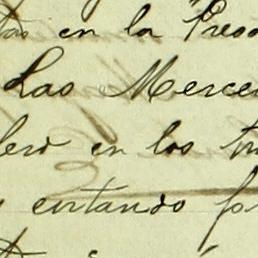 tas en la Preso
Las Merce
lero en los tra
cortando pa